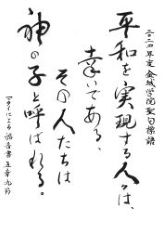 二〇二四年度 金城学院聖句標語
平和を実現する人々は、
幸いである、
その人たちは
神の子と呼ばれる。
マタイによる福音書五章九節